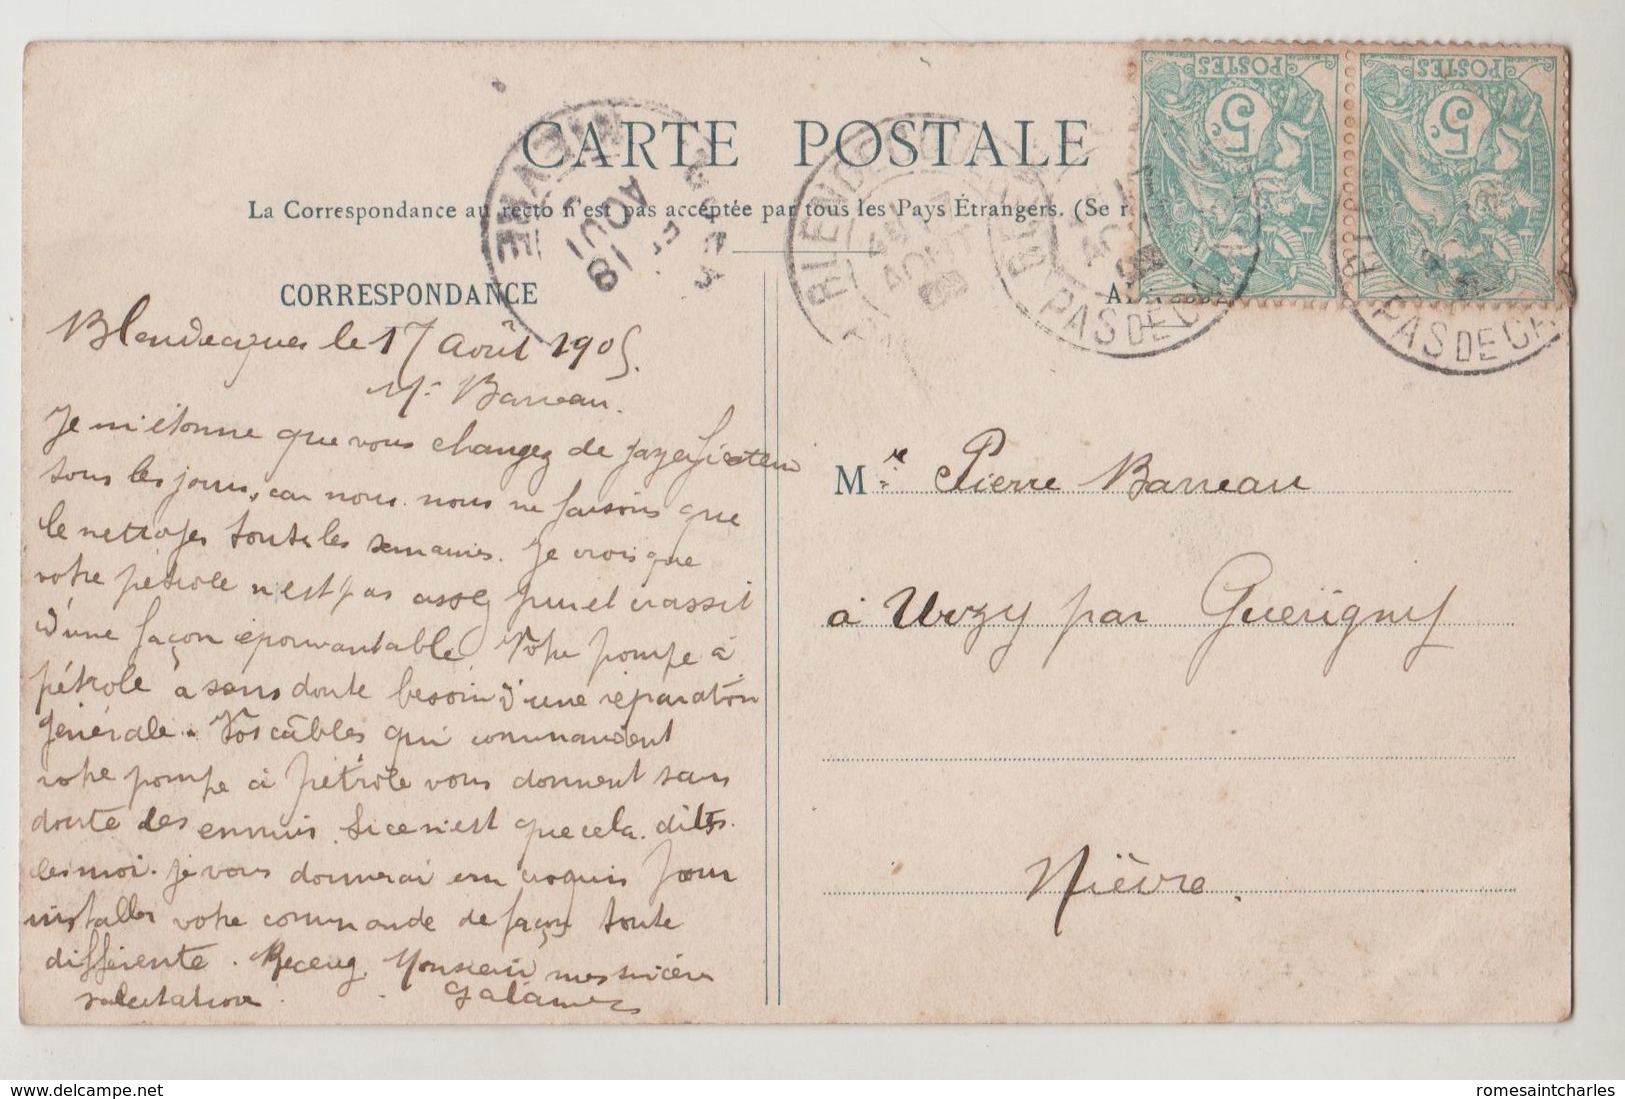 CARTE POSTALE
La Correspondance au recto n'est pas acceptée par tous les Pays Étrangers. (Se r
CORRESPONDANCE
Blendecques le 17 Août 1905.
Mr Barreau.
Je m'étonne que vous changez de
tous les jours, car nous nous ne faisons que
le nettoyer toutes les semaines. Je crois que
votre pétrole n'est pas assez pur et crassit
d'une façon épouvantable. Votre pompe à
pétrole a sans doute besoin d'une réparation
générale. Vos câbles qui commandent
votre pompe à pétrole vous donnent sans
doute des ennuis. Si ce n'est que cela. dites
les moi. Je vous donnerai un croquis pour
installer votre commande de façon toute
différente. Recevez, Monsieur mes sincères
salutations.
Mr Pierre Barreau
à Urzy par Guérigny
Nièvre.
POSTES
5c
POSTES
5c
NIEVRE
18
AOUT
PAS DE C
PAS DE CA
www.delcampe.net
romesaintcharles